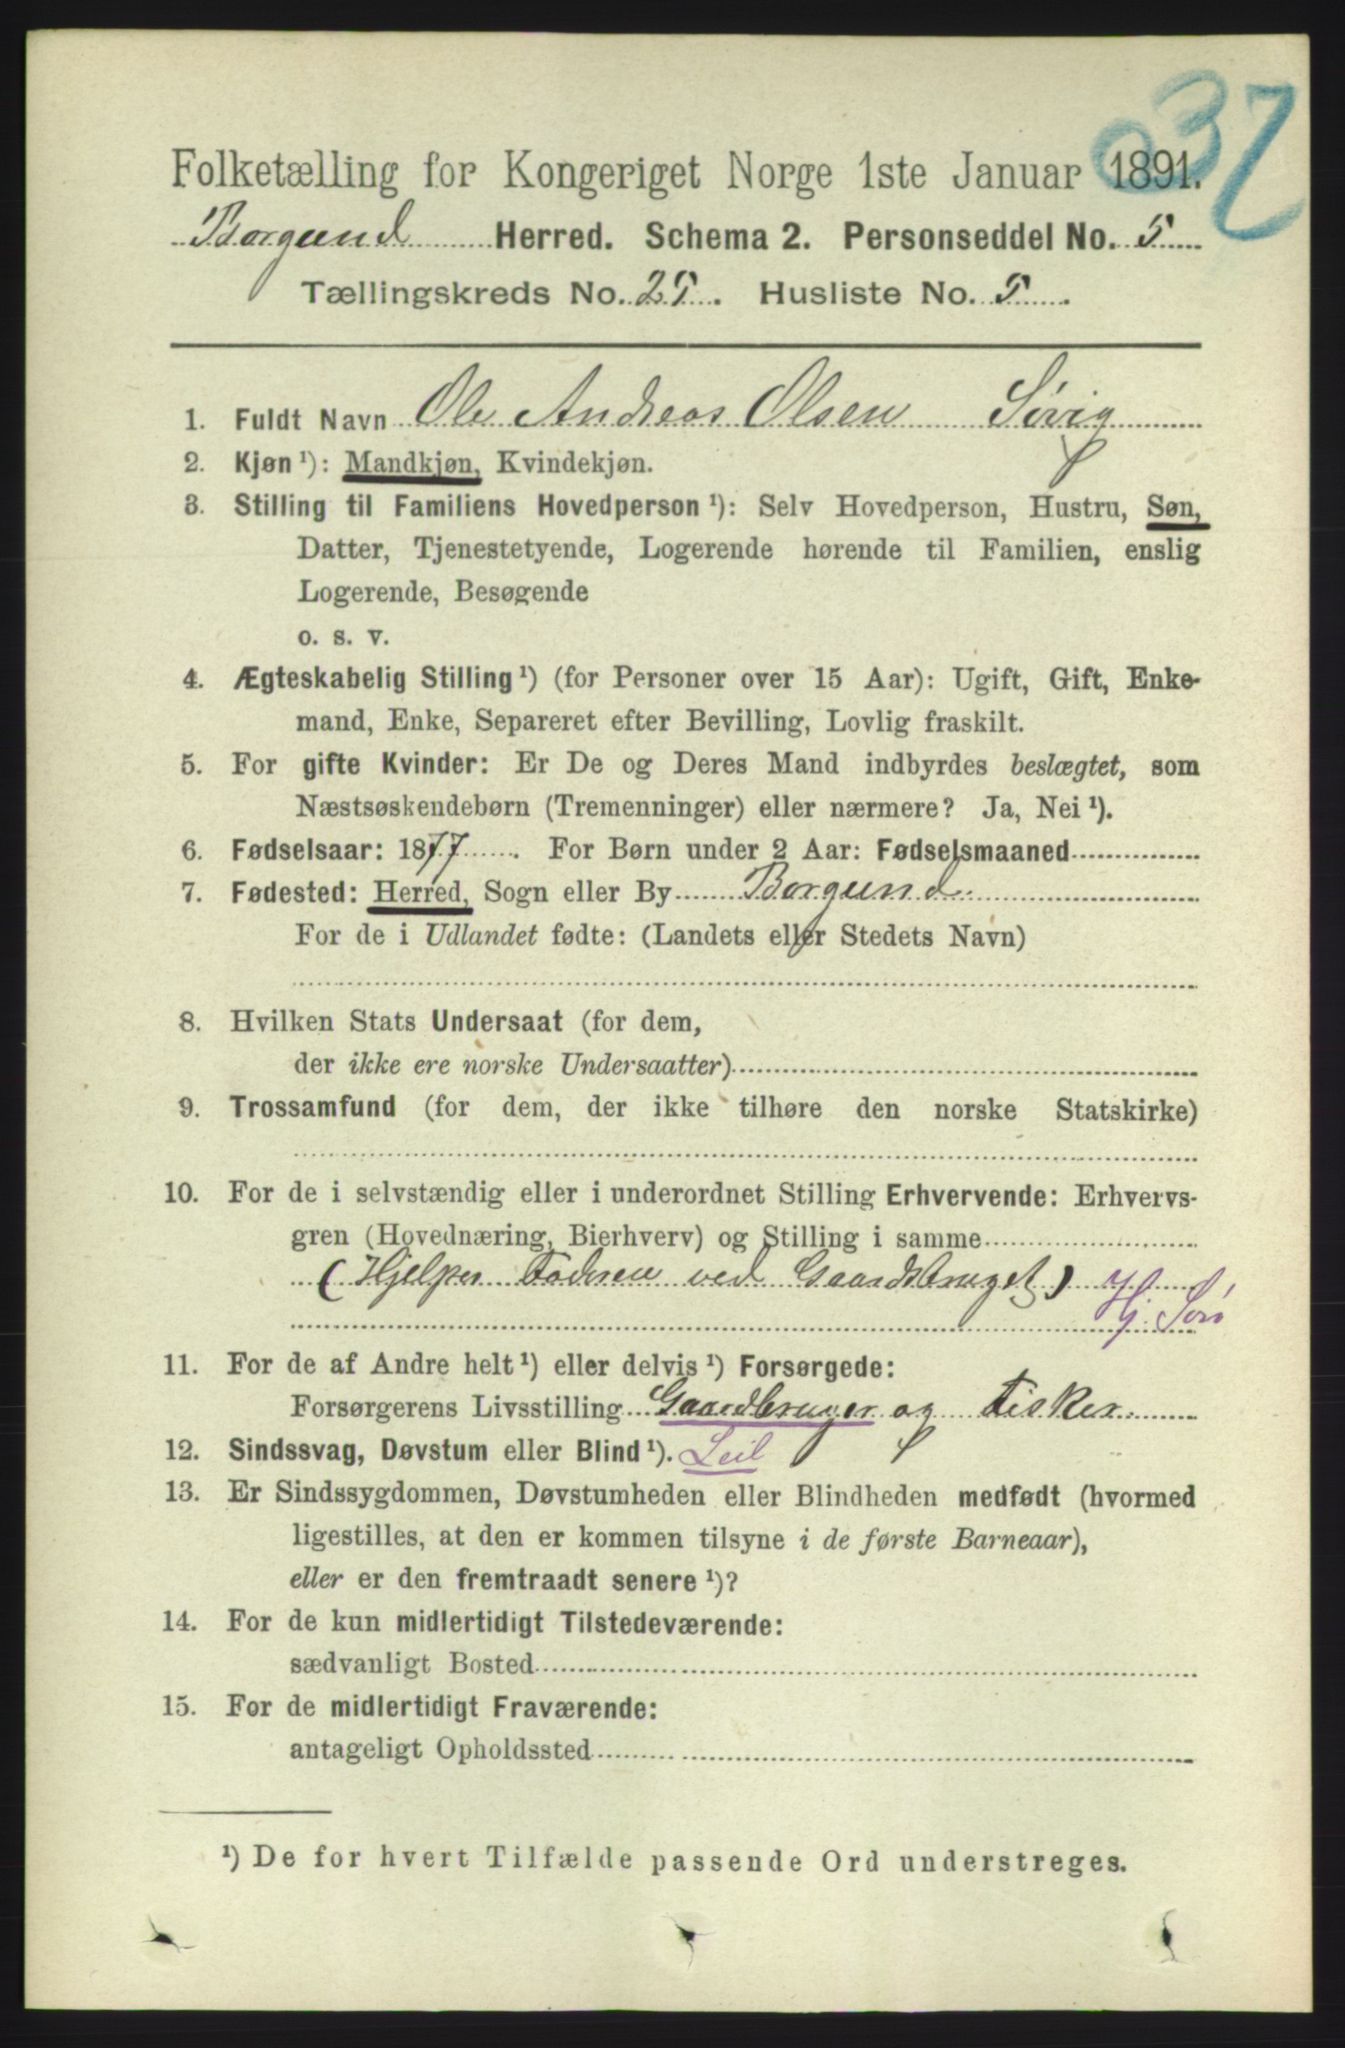 37
Folketælling for Kongeriget Norge 1ste Januar 1891.
Borgund Herred. Schema 2. Personseddel No. 5
Tællingskreds No. 25. Husliste No. 5.
1. Fuldt Navn Ole Andreas Olsen Sörig
2. Kjøn ¹): Mandkjøn, Kvindekjøn.
3. Stilling til Familiens Hovedperson ¹): Selv Hovedperson, Hustru, Søn,
Datter, Tjenestetyende, Logerende hørende til Familien, enslig
Logerende, Besøgende
o. s. v.
4. Ægteskabelig Stilling ¹) (for Personer over 15 Aar): Ugift, Gift, Enke-
mand, Enke, Separeret efter Bevilling, Lovlig fraskilt.
5. For gifte Kvinder: Er De og Deres Mand indbyrdes beslægtet, som
Næstsøskendebørn (Tremenninger) eller nærmere? Ja, Nei ¹).
6. Fødselsaar: 1877. For Børn under 2 Aar: Fødselsmaaned
7. Fødested: Herred, Sogn eller By Borgund
For de i Udlandet fødte: (Landets eller Stedets Navn)
8. Hvilken Stats Undersaat (for dem,
der ikke ere norske Undersaatter)
9. Trossamfund (for dem, der ikke tilhøre den norske Statskirke)
10. For de i selvstændig eller i underordnet Stilling Erhvervende: Erhvervs-
gren (Hovednæring, Bierhverv) og Stilling i samme
(Hjelper Faderen ved Gaardsbruget)
Hj. Sön
11. For de af Andre helt ¹) eller delvis ¹) Forsørgede:
Forsørgerens Livsstilling Gaardbruger og Fisker.
12. Sindssvag, Døvstum eller Blind ¹). Leil
13. Er Sindssygdommen, Døvstumheden eller Blindheden medfødt (hvormed
ligestilles, at den er kommen tilsyne i de første Barneaar),
eller er den fremtraadt senere ¹)?
14. For de kun midlertidigt Tilstedeværende:
sædvanligt Bosted
15. For de midlertidigt Fraværende:
antageligt Opholdssted
¹) De for hvert Tilfælde passende Ord understreges.